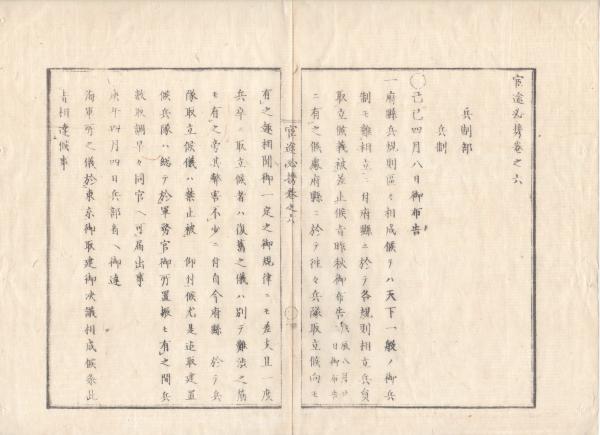 官途必携巻之六
兵制部
兵制
○己巳四月八日御布告
一府縣兵規則區々相成候テハ天下一般ノ御兵
制モ難相立ニ付府縣ニ於テ各規則相立兵員
取立候義被差止候旨昨秋御布告戊辰八月 日御布告
ニ有之候處府縣ニ於テ往々兵隊取立候向モ
官途必携巻之六
有之趣相聞御一定之御規律ニモ差支且一度
兵卒ニ取立候者ハ復舊之儀ハ別テ難渋之筋
モ有之旁其弊害不少ニ付自今府縣 於テ兵
隊取立候儀ハ禁止被 仰付候尤是迄取建置
候兵隊ハ總テ於軍務官御所置振モ有之間兵
数取調早々同官ヘ可届出事
庚午四月四日兵部省ヘ御達
海軍所之儀於東京御取建御決議相成候条此
旨相達候事